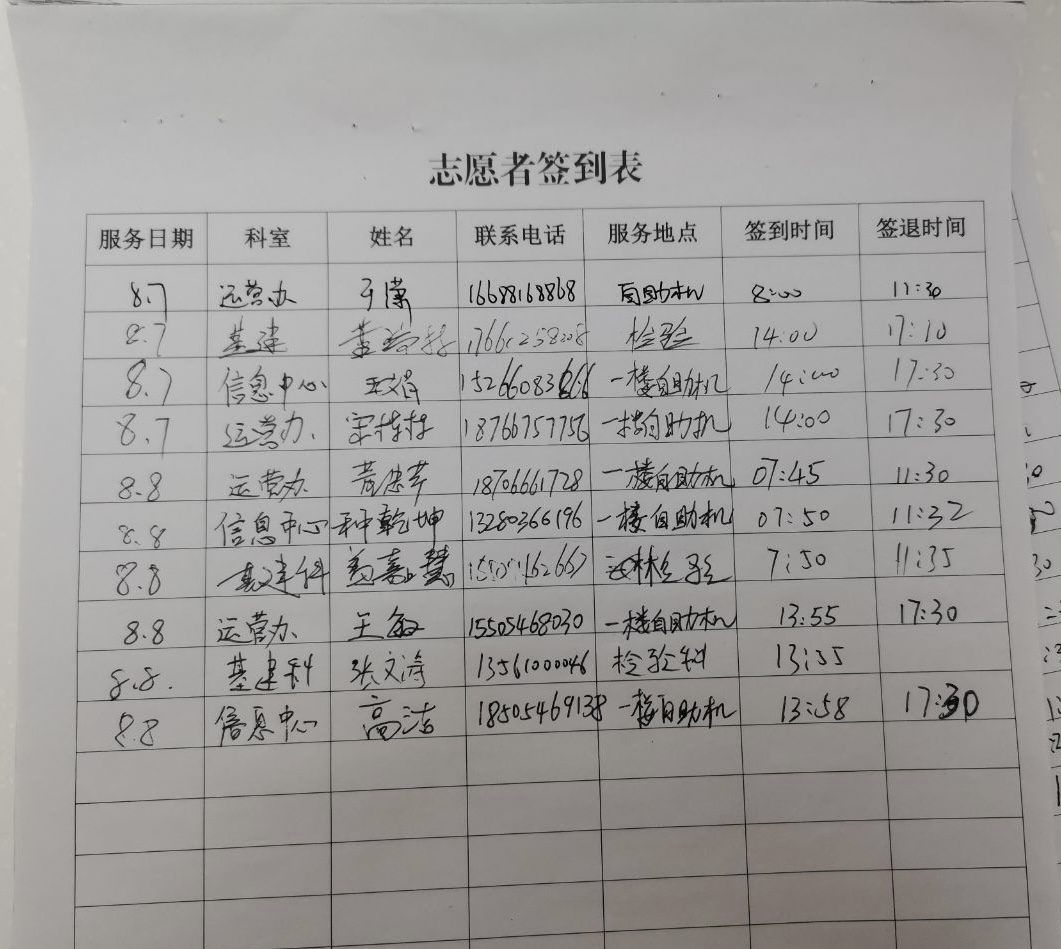 志愿者签到表
服务日期 科室 姓名 联系电话 服务地点 签到时间 签退时间
8.7 运营办 16688168868 自助机 8:00 11:30
8.7 基建 检验 14:00 17:10
8.7 信息中心 一楼自助机 14:00 17:30
8.7 运营办 18766757756 一楼自助机 14:00 17:30
8.8 运营办 18706661728 一楼自助机 07:45 11:30
8.8 信息中心 种乾坤 13280366196 一楼自助机 07:50 11:32
8.8 基建科 7:50 11:35
8.8 运营办 王敏 15505468030 一楼自助机 13:55 17:30
8.8. 基建科 张文涛 13561000046 检验科 13:55
8.8 信息中心 高洁 18505469138 一楼自助机 13:58 17:30